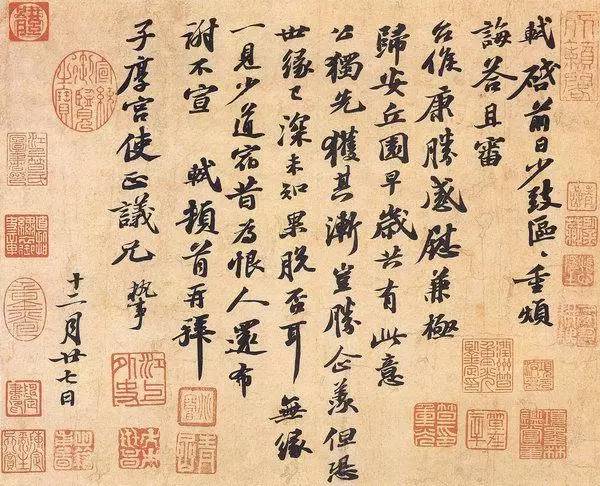 軾啓前日少致區〻重煩
誨答且審
台候康勝感慰兼極
歸安丘園早歲共有此意
公獨先獲其漸豈勝企羨但恐
世緣已深未知果脫否耳無緣
一見少道宿昔為恨人還布
謝不宣 軾頓首再拜
子厚宮使正議兄 執事
十二月廿七日
宣統御覽之寶
江上外史